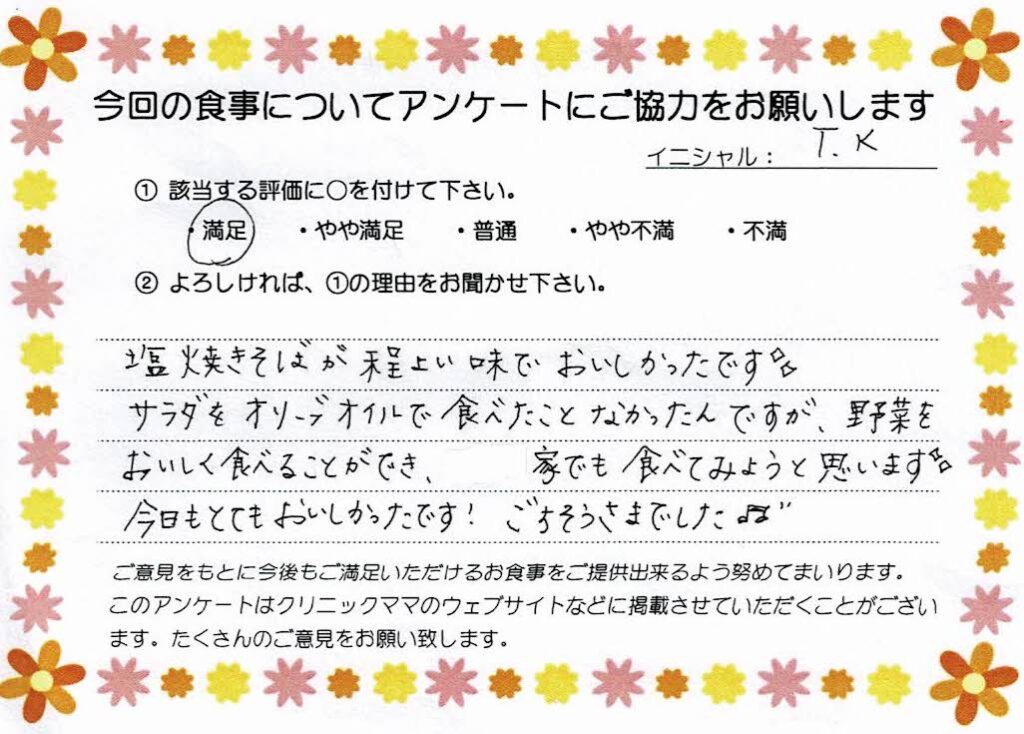 今回の食事についてアンケートにご協力をお願いします
イニシャル： T.K
① 該当する評価に〇を付けて下さい。
・満足 ・やや満足 ・普通 ・やや不満 ・不満
② よろしければ、①の理由をお聞かせ下さい。
塩焼きそばが程よい味でおいしかったです
サラダをオリーブオイルで食べたことなかったんですが、野菜を
おいしく食べることができ、 家でも食べてみようと思います
今日もとてもおいしかったです！ ごちそうさまでした♫
ご意見をもとに今後もご満足いただけるお食事をご提供出来るよう努めてまいります。
このアンケートはクリニックママのウェブサイトなどに掲載させていただくことがござい
ます。たくさんのご意見をお願い致します。